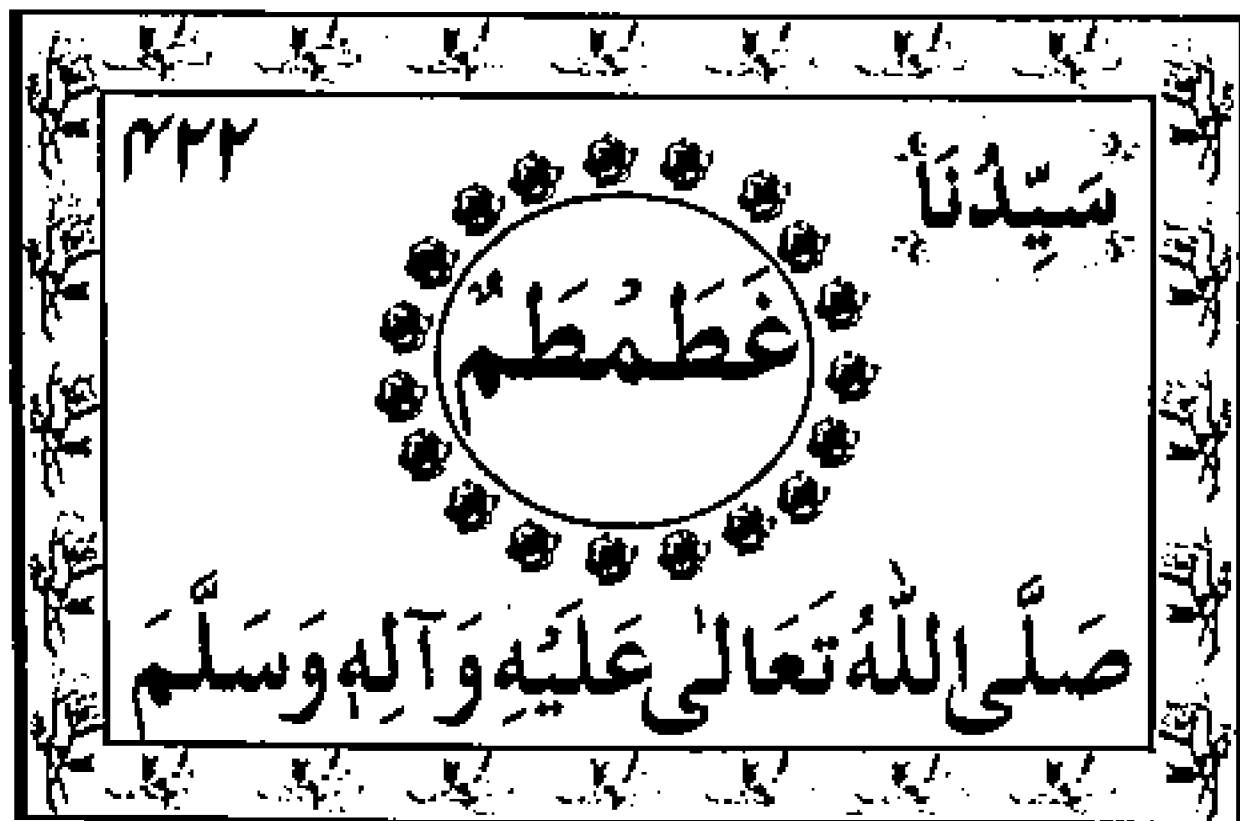 سَيِّدُنَا ۴۲۲
غَطَمْطَمٌ
صَلَّى اللّٰهُ تَعَالىٰ عَلَيْهِ وَآلِهٖ وَسَلَّمَ